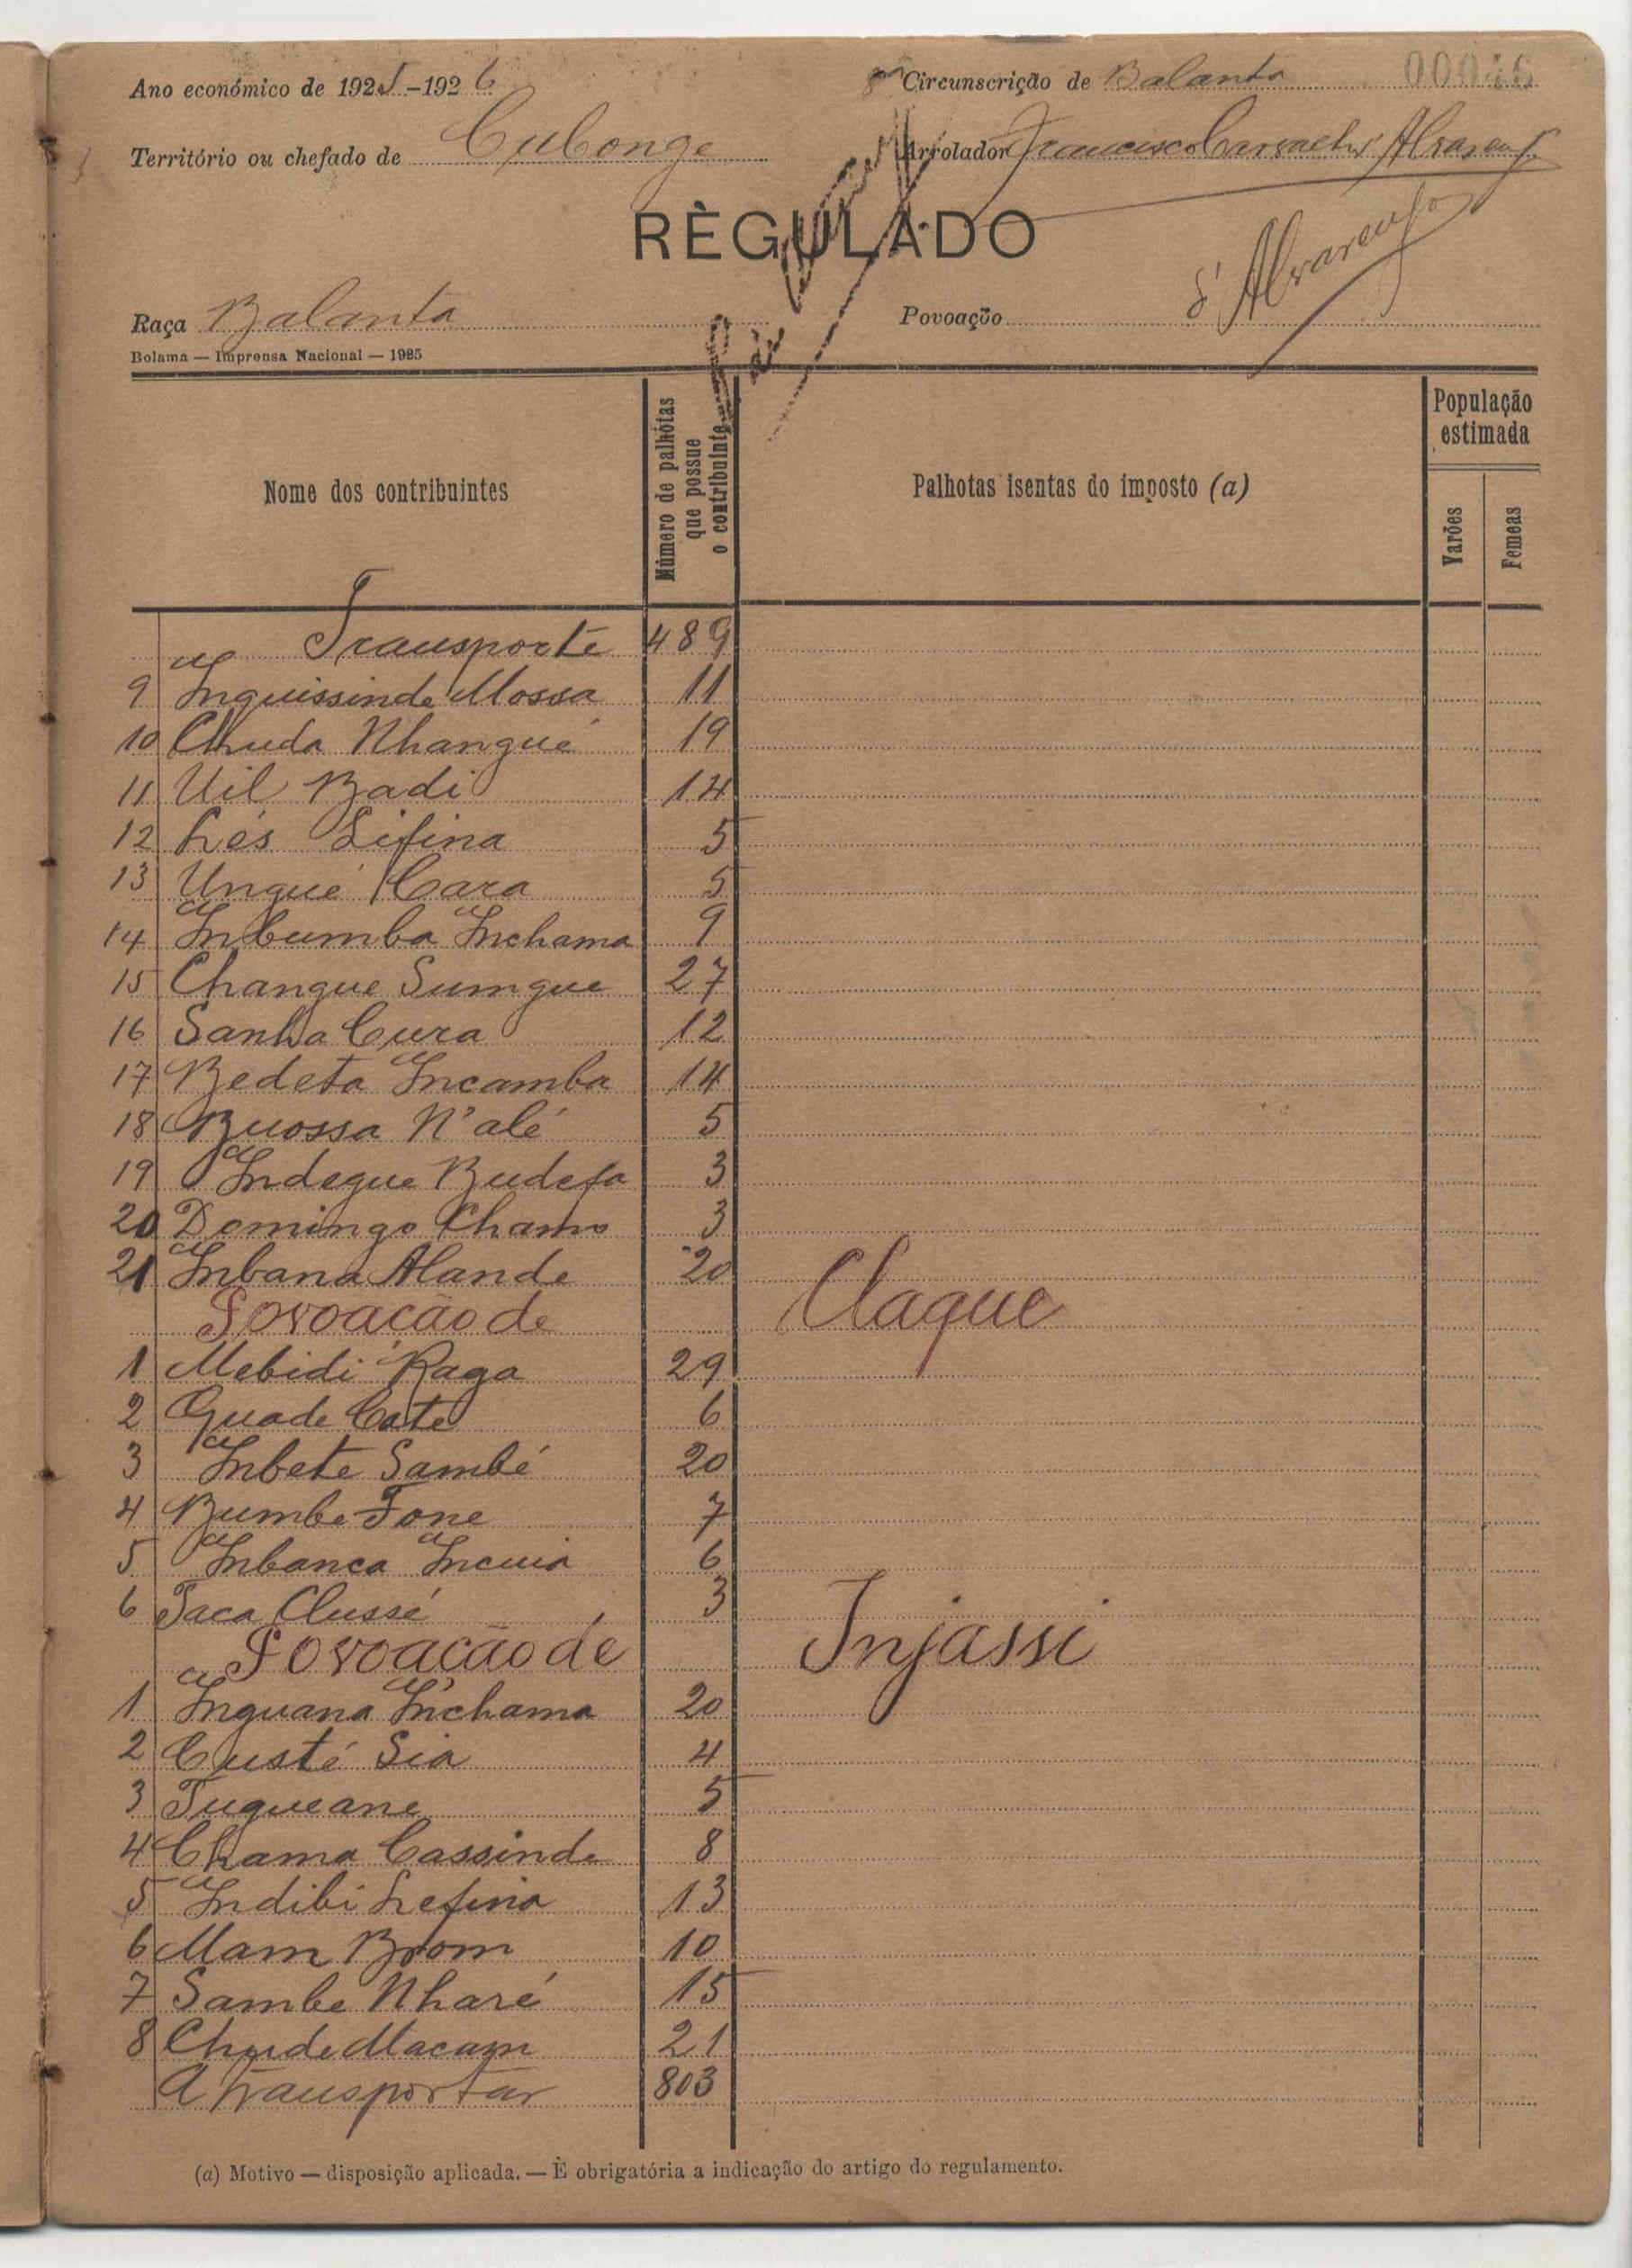 Ano económico de 1925-1926
Circunscrição de Balanta
00046
Território ou chefado de Cubonge
Arrolador Francisco Carvalho Alvarenga
RÈGULADO
Raça Balanta
Povoação
Alvarenga
Bolama — Imprensa Nacional — 1925
Nome dos contribuintes
Número de palhótas que possue o contribuinte
Palhotas isentas do imposto (a)
População estimada
Varões
Femeas
Transporte 489
9 Inquissinde Mossa 11
10 Chuda Nhangué 19
11 Uil Badi 14
12 Lés Sifina 5
13 Ungué Cara 5
14 Inbumba Inchama 9
15 Changue Sumgue 27
16 Sanha Cura 12
17 Bedeta Incamba 14
18 Buossa N'alé 5
19 Indegue Budefa 3
20 Domingo Chamo 3
21 Inbana Alande 20
Povoação de Claque
1 Mebidi Raga 29
2 Guade Cate 6
3 Inbete Sambé 20
4 Bumbe Fone 7
5 Inbanca Incuia 6
6 Taca Clussé 3
Povoação de Injassi
1 Inguana Inchama 20
2 Custé Sia 4
3 Tugueane 5
4 Chama Cassinde 8
5 Indibi Lefina 13
6 Mam Brom 10
7 Sambe Nharé 15
8 Chude Macam 21
A transportar 803
(a) Motivo — disposição aplicada. — È obrigatória a indicação do artigo do regulamento.